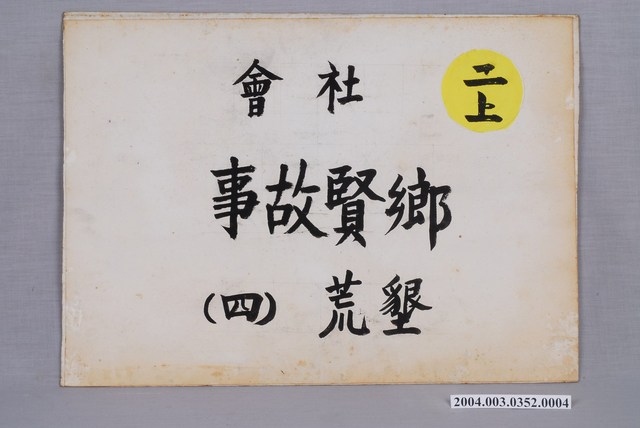 二上
社會
鄉賢故事
墾荒(四)
2004.003.0352.0004